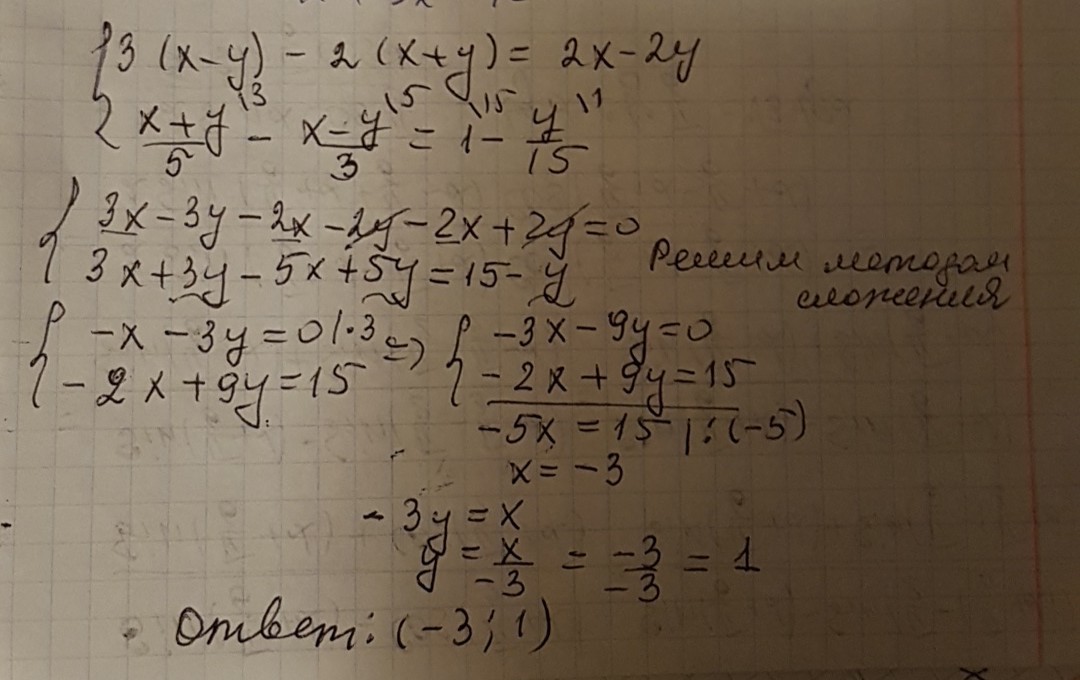 {3 (x-y) - 2 (x+y) = 2x-2y
{(x+y)/5 \3 - (x-y)/3 \5 = 1 \15 - y/15 \1
{3x-3y-2x-2y-2x+2y=0
{3x+3y-5x+5y=15-y
Решим методом
сложения
{-x-3y=0|·3 => {-3x-9y=0
{-2x+9y=15 {-2x+9y=15
-5x=15 |:(-5)
x=-3
-3y=x
y=x/-3 = -3/-3 = 1
Ответ: (-3; 1)